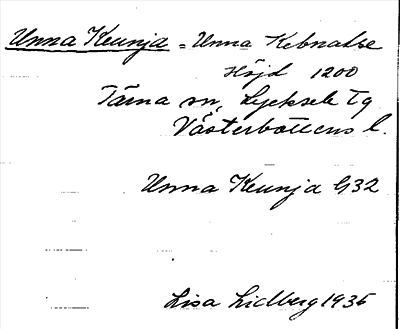 Unna Keunja = Unna Kebnatse
Höjd 1200
Tärna sn, Lycksele tg
Västerbottens l.
Unna Keunja G32
Lisa Lidberg 1935